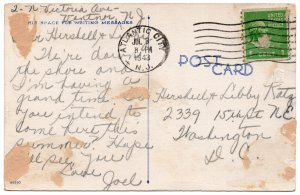 2-N Victoria Ave-
Ventnor, N.J.
THIS SPACE FOR WRITING MESSAGES
Dear Hershell &
I'm down
the shore and
I'm having a
grand time. Do
you intend to
come here this
summer. Hope
I'll see you
Love
Joel
ATLANTIC CITY
JUL
PM
1943
N.J.
POST
CARD
Hershell & Libby
2339 15th St N.E.
Washington
D.C.